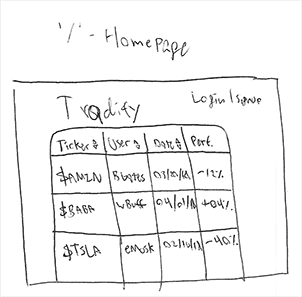 '/' - HomePage
Tradify Login/Signup
Ticker User Date Perf.
$AMZN Bbytes 03/20/18 -12%
$BABA wBuff 04/01/18 +04%
$TSLA eMusk 02/10/18 -40%